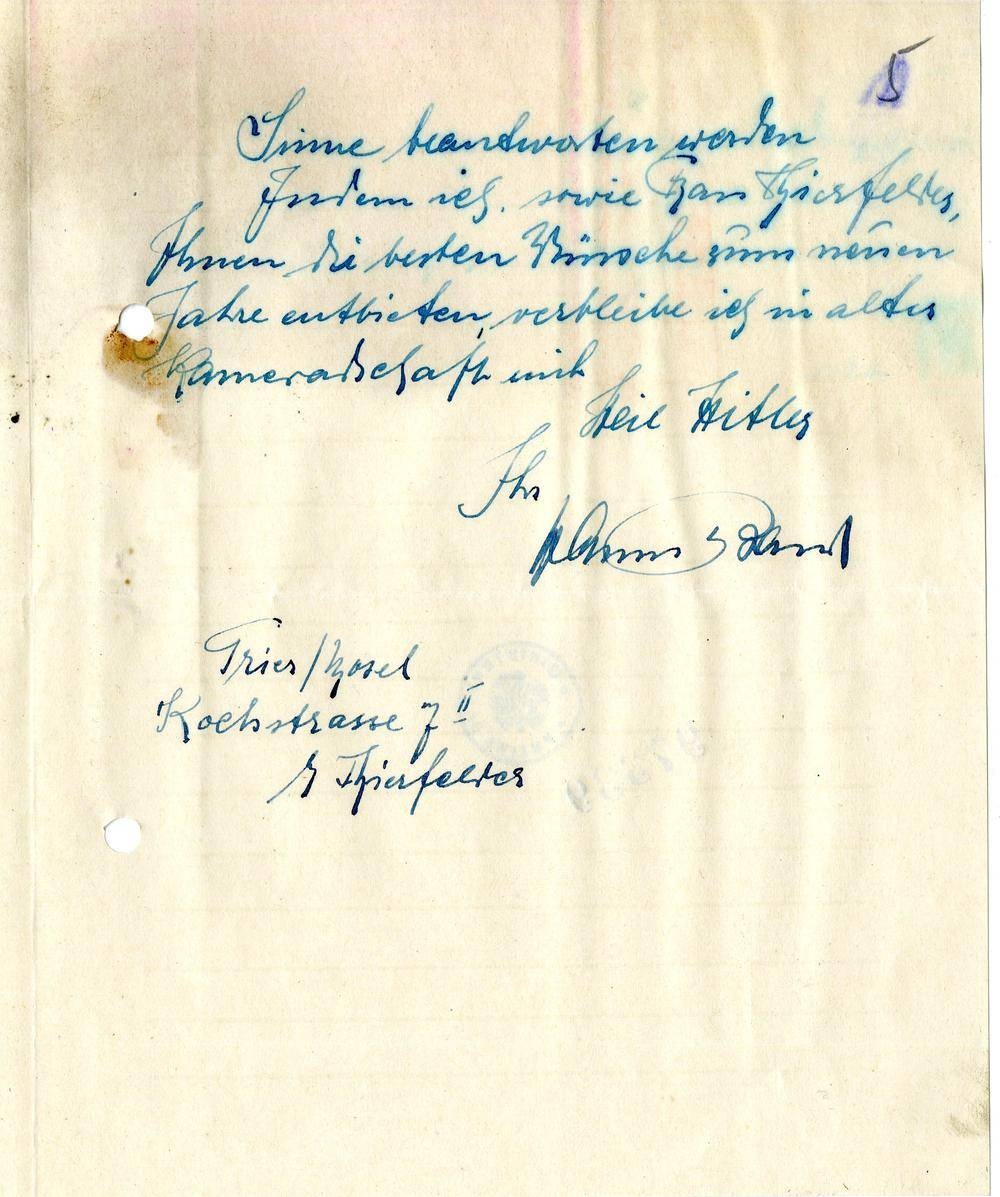 5
Sinne beantworten werden
Indem ich, sowie Frau Thierfelder,
Ihnen die besten Wünsche zum neuen
Jahre entbieten, verbleibe ich in alter
Kameradschaft mit
Heil Hitler
Ihr
Trier/Mosel
Kochstrasse 7 II
b Thierfelder